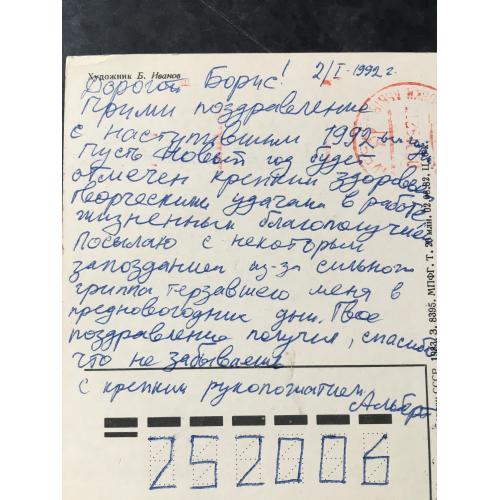 Художник Б. Иванов
2/I-1992 г.
Дорогой Борис!
Прими поздравление
с наступившим 1992-ым годом
Пусть Новый год будет
отмечен крепким здоровьем
творческими удачами в работе
жизненным благополучием
Посылаю с некоторым
запозданием из-за сильного
гриппа терзавшего меня в
предновогодние дни. Твое
поздравление получил, спасибо
что не забываешь
С крепким рукопожатием
Альберт
252006
СССР, 1983/ З. 8395. МПФГ. Т. 20 млн. 02.06.82. Ц.